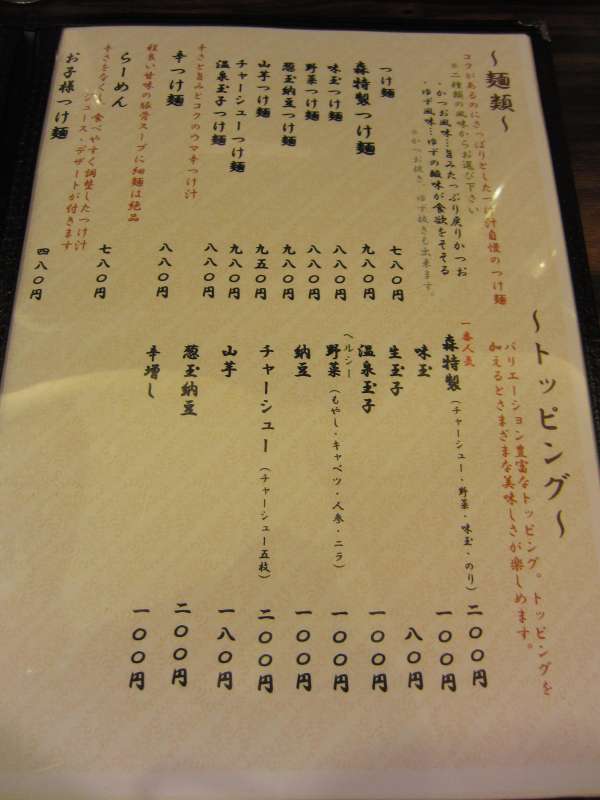 ～麺類～
コクがあるのにさっぱりとしたつけ汁自慢のつけ麺
※二種類の風味からお選び下さい
・かつお風味…旨みたっぷり戻りかつお
・ゆず風味…ゆずの酸味が食欲をそそる
※かつお抜き、ゆず抜きも出来ます。
つけ麺 七八〇円
森特製つけ麺 九八〇円
味玉つけ麺 八八〇円
野菜つけ麺 八八〇円
葱玉納豆つけ麺 九八〇円
山芋つけ麺 九五〇円
チャーシューつけ麺 九八〇円
温泉玉子つけ麺 八八〇円
辛さと旨みとコクのウマ辛つけ汁
辛つけ麺 八八〇円
程良い甘味の豚骨スープに細麺は絶品
らーめん 七八〇円
辛さをなくし、食べやすく調整したつけ汁
ジュース・デザートが付きます
お子様つけ麺 四八〇円
～トッピング～
バリエーション豊富なトッピング。トッピングを
加えるとさまざまな美味しさが楽しめます。
一番人気
森特製（チャーシュー・野菜・味玉・のり） 二〇〇円
味玉 一〇〇円
生玉子 八〇円
温泉玉子 一〇〇円
ヘルシー
野菜（もやし・キャベツ・人参・ニラ） 一〇〇円
納豆 一〇〇円
チャーシュー（チャーシュー五枚） 二〇〇円
山芋 一八〇円
葱玉納豆 二〇〇円
辛増し 一〇〇円